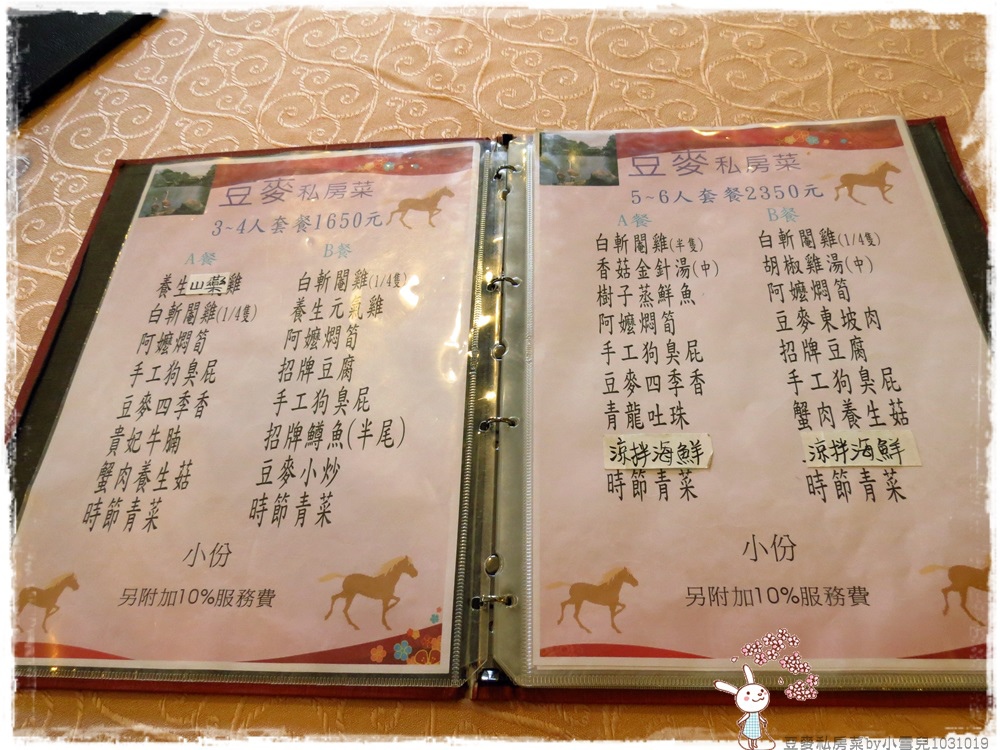 豆麥私房菜
3~4人套餐1650元
A餐
養生山藥雞
白斬閹雞(1/4隻)
阿嬤燜筍
手工狗臭屁
豆麥四季香
貴妃牛腩
蟹肉養生菇
時節青菜
B餐
白斬閹雞(1/4隻)
養生元氣雞
阿嬤燜筍
招牌豆腐
手工狗臭屁
招牌鱒魚(半尾)
豆麥小炒
時節青菜
小份
另附加10%服務費
豆麥私房菜
5~6人套餐2350元
A餐
白斬閹雞(半隻)
香菇金針湯(中)
樹子蒸鮮魚
阿嬤燜筍
手工狗臭屁
豆麥四季香
青龍吐珠
涼拌海鮮
時節青菜
B餐
白斬閹雞(1/4隻)
胡椒雞湯(中)
阿嬤燜筍
豆麥東坡肉
招牌豆腐
手工狗臭屁
蟹肉養生菇
涼拌海鮮
時節青菜
小份
另附加10%服務費
豆麥私房菜by小雪兒1031019